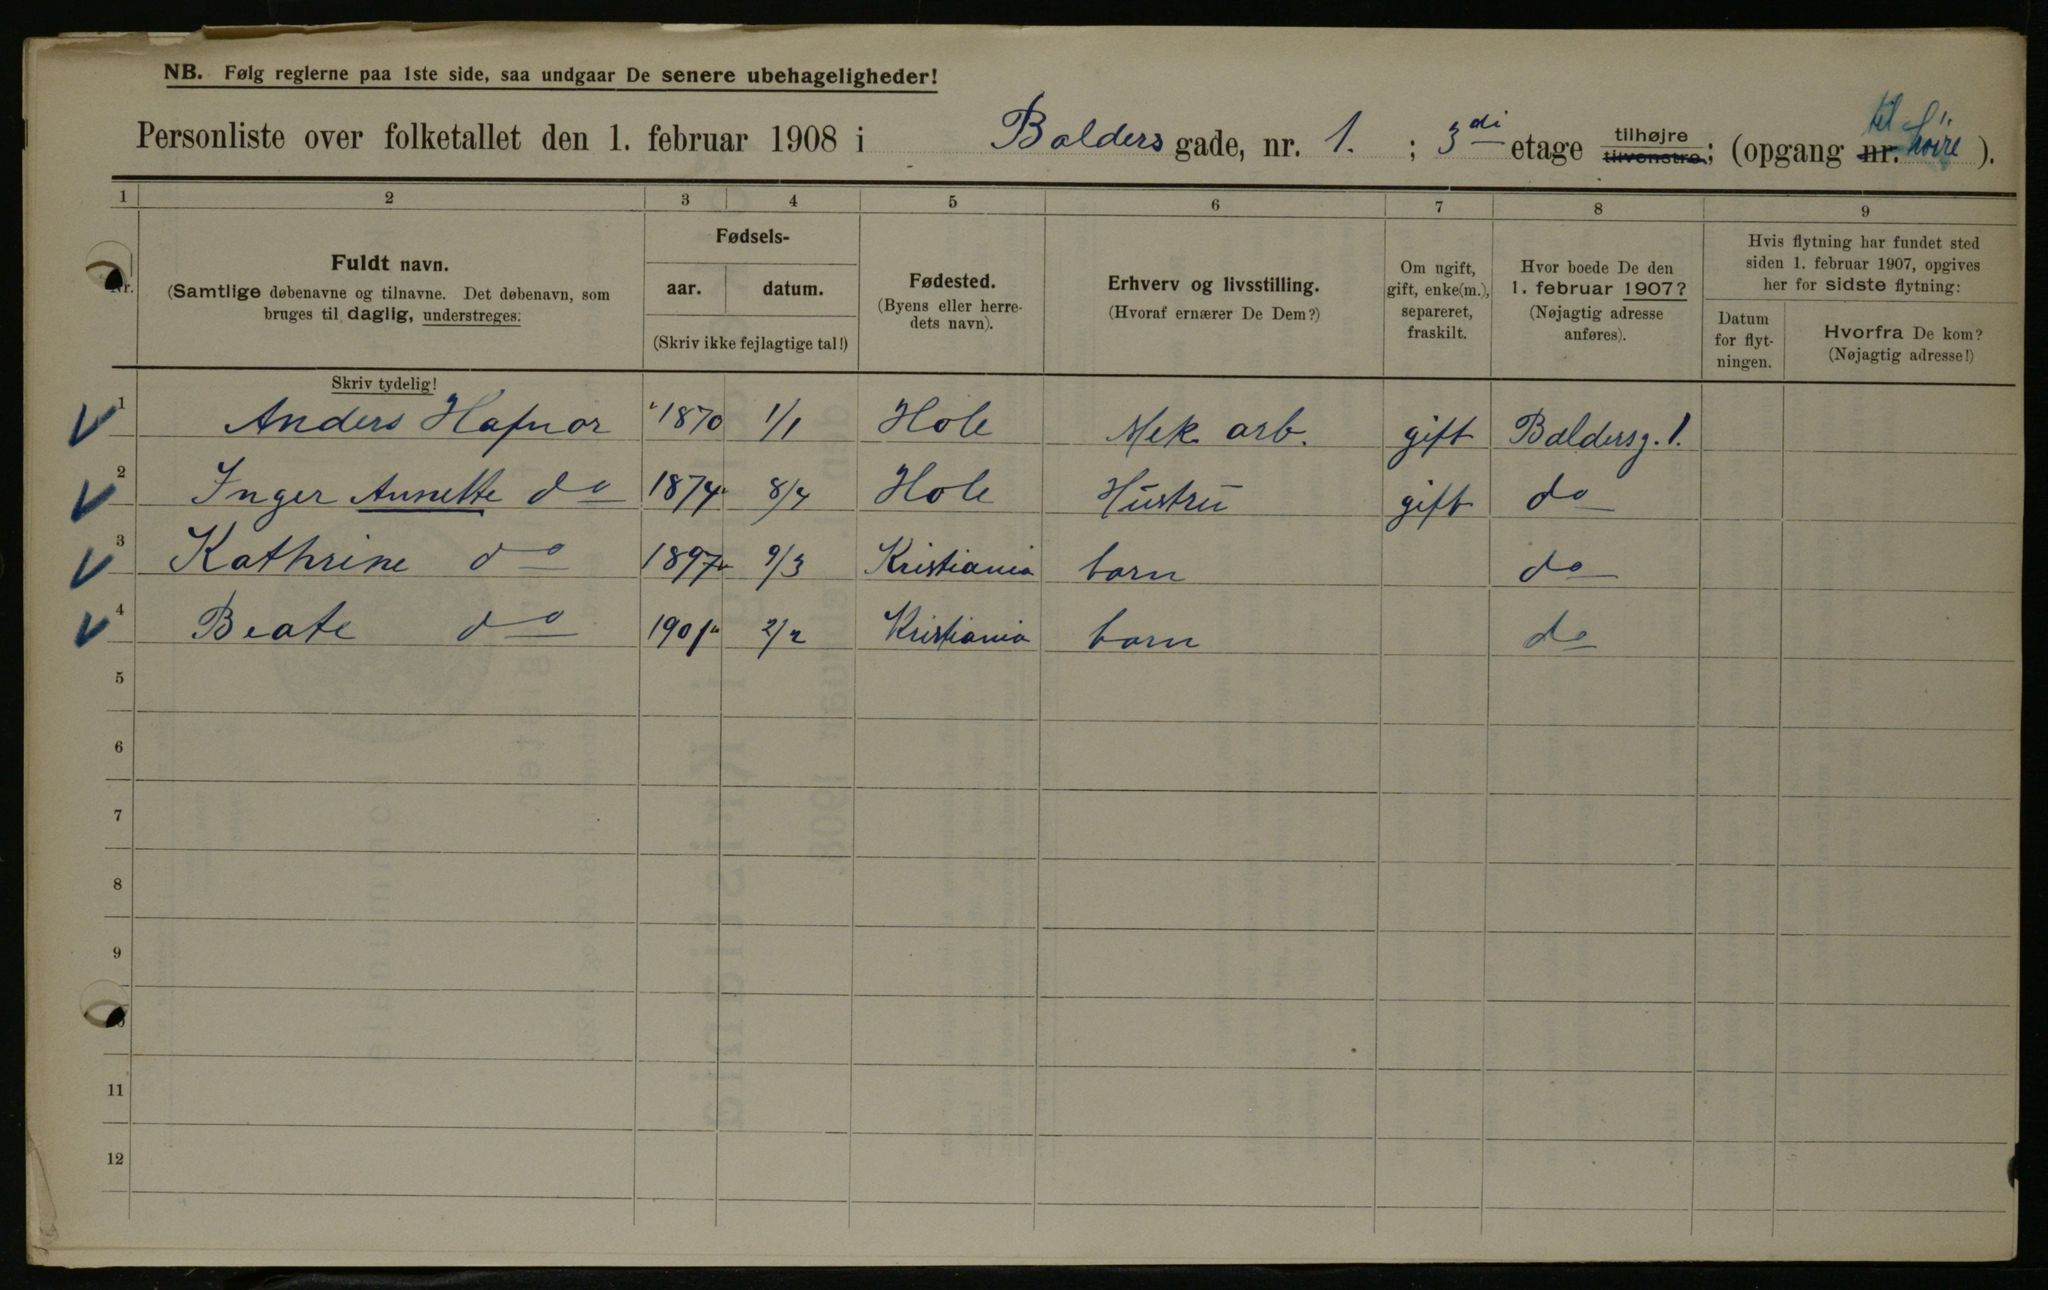 NB. Følg reglerne paa 1ste side, saa undgaar De senere ubehageligheder!
Personliste over folketallet den 1. februar 1908 i Balders gade, nr. 1. ; 3di etage tilhøjre tilvenstre; (opgang nr. til høire ).
1 2 3 4 5 6 7 8 9
Nr.
Fuldt navn.
(Samtlige døbenavne og tilnavne. Det døbenavn, som
bruges til daglig, understreges.
Skriv tydelig!
Fødsels-
aar. datum.
(Skriv ikke fejlagtige tal!)
Fødested.
(Byens eller herre-
dets navn).
Erhverv og livsstilling.
(Hvoraf ernærer De Dem?)
Om ugift,
gift, enke(m.),
separeret,
fraskilt.
Hvor boede De den
1. februar 1907?
(Nøjagtig adresse
anføres).
Hvis flytning har fundet sted
siden 1. februar 1907, opgives
her for sidste flytning:
Datum
for flyt-
ningen.
Hvorfra De kom?
(Nøjagtig adresse!)
1 Anders Hafnor 1870 1/1 Hole Mek arb. gift Baldersg. 1.
2 Inger Annette do 1874 8/7 Hole Hustru gift do
3 Kathrine do 1897 9/3 Kristiania barn do
4 Beate do 1901 2/2 Kristiania barn do
5
6
7
8
9
11
12